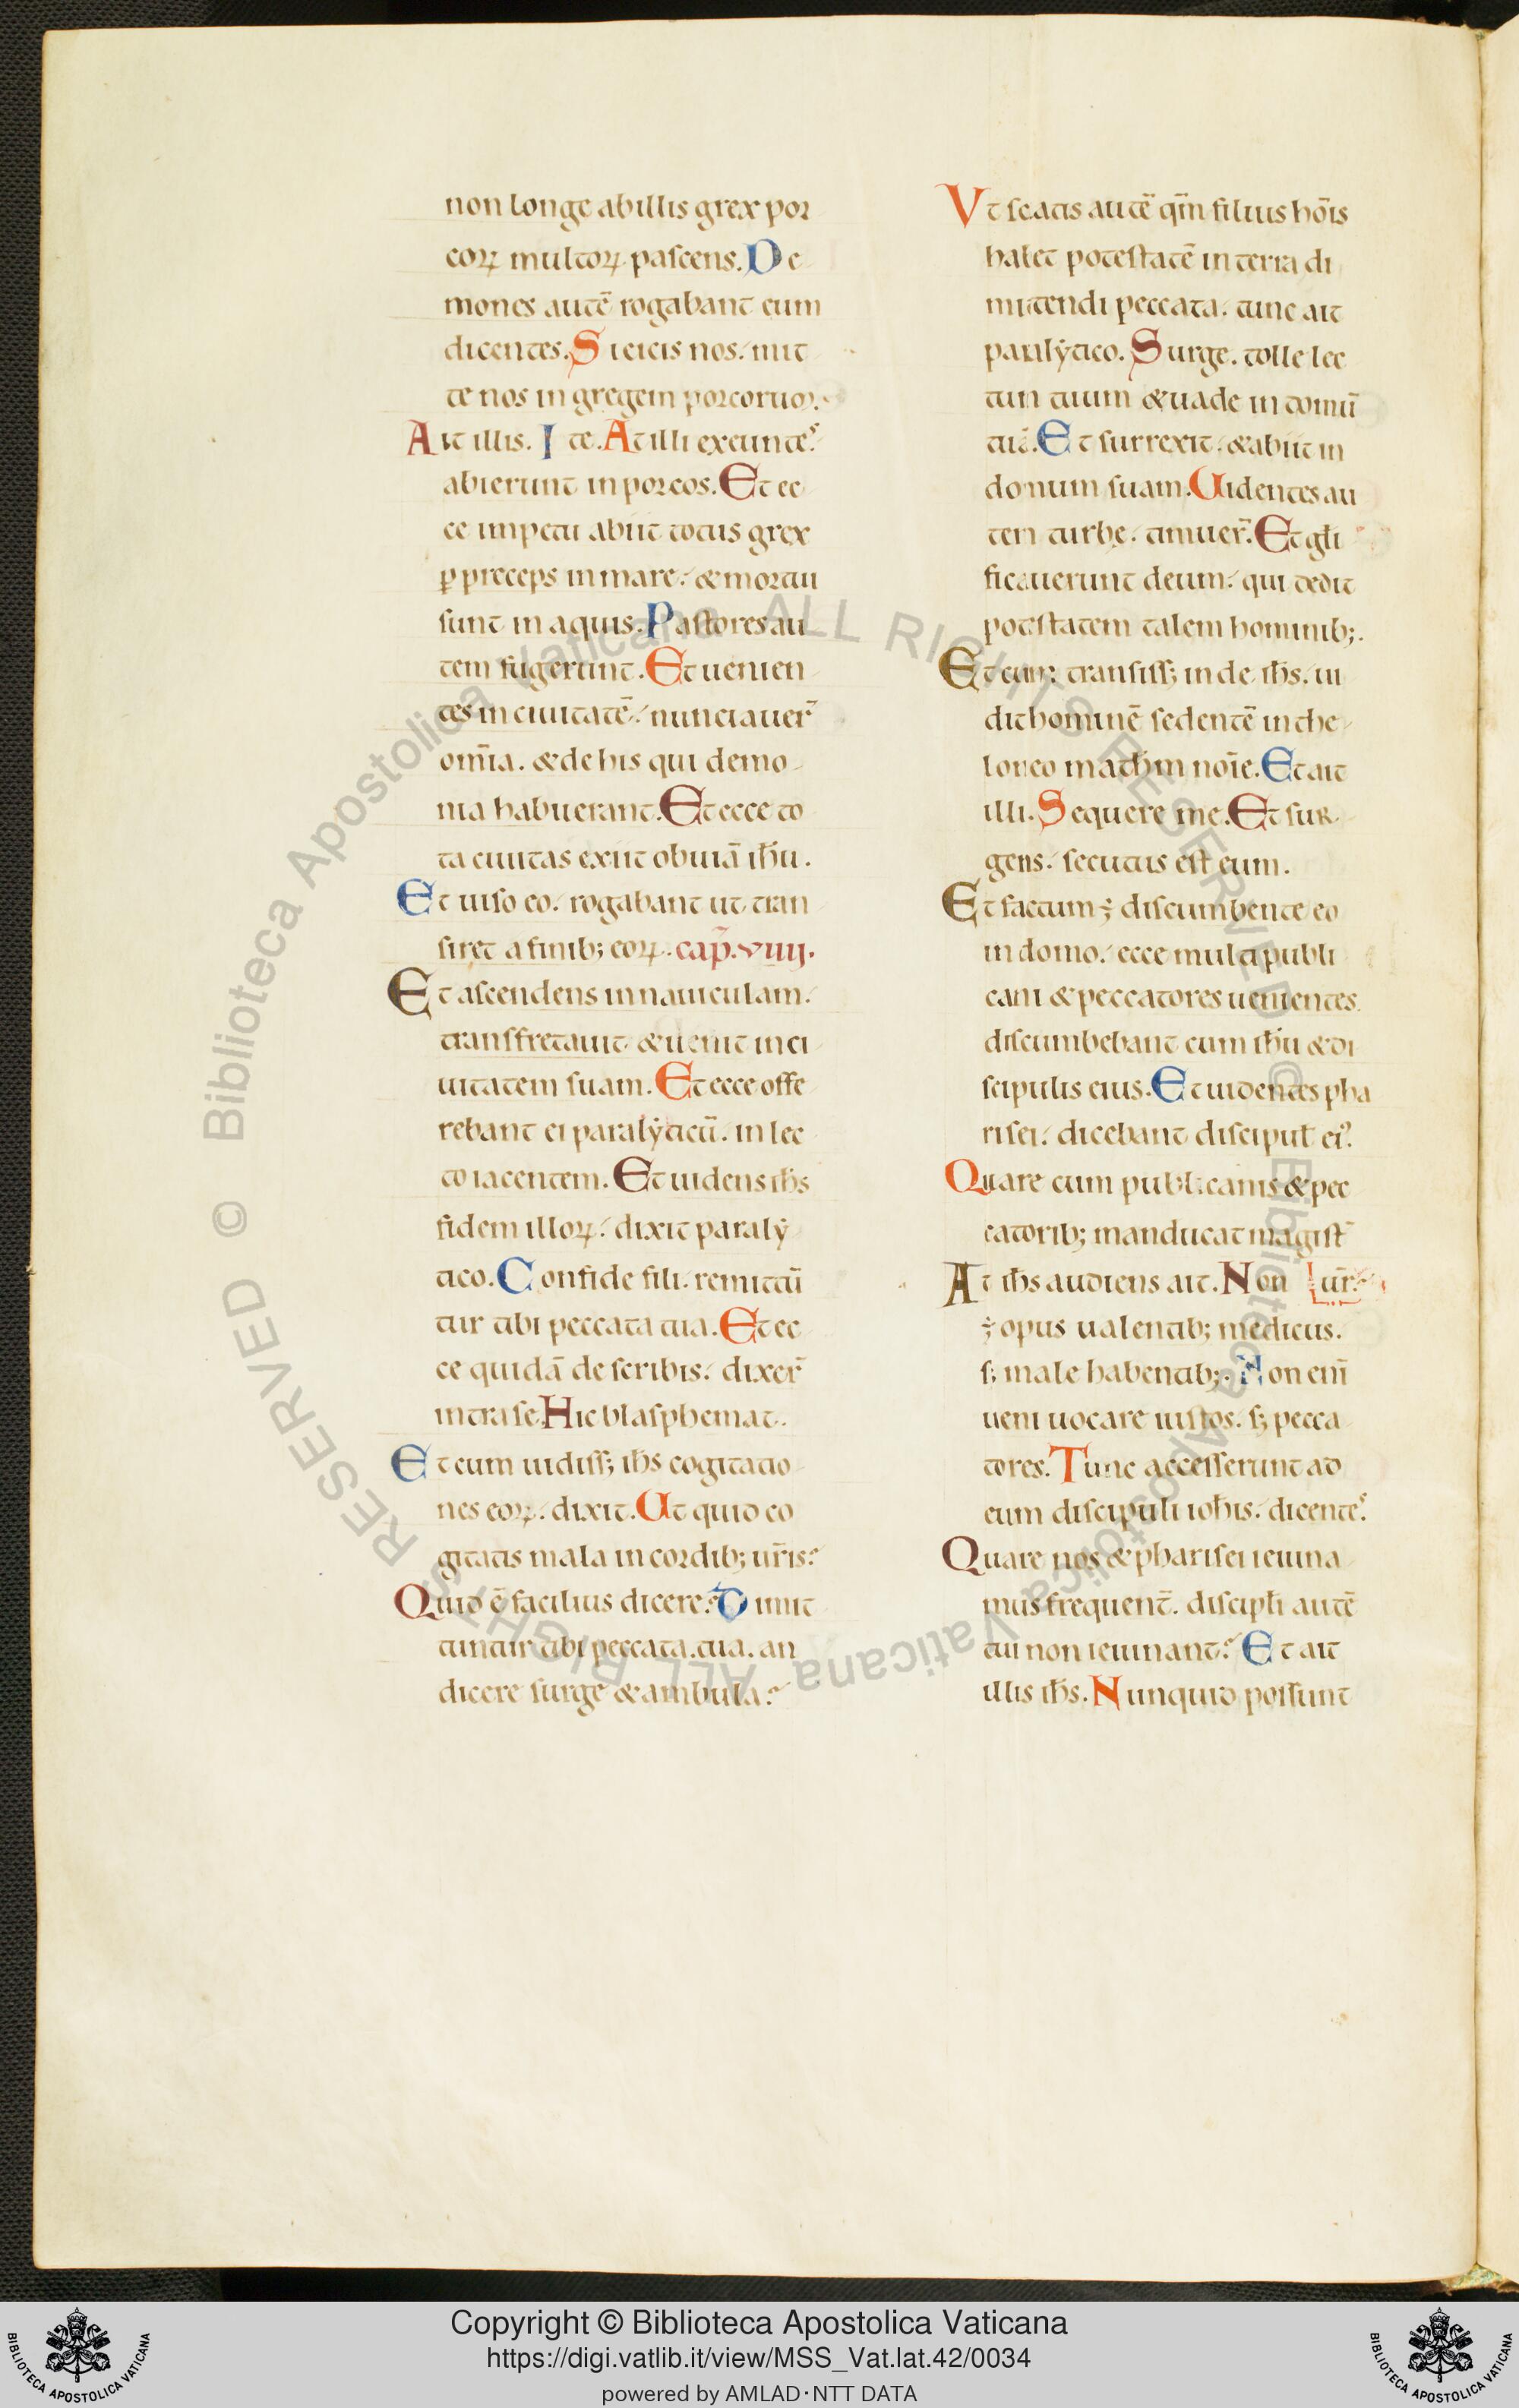 non longe ab illis grex por
coꝝ multoꝝ pascens. De
mones autē rogabant eum
dicentes. Si eicis nos. mit
te nos in gregem porcoruꝫ.
Ait illis. Ite. At illi exeuntes
abierunt in porcos. Et ec
ce impetu abiit totus grex
ꝑ preceps in mare. & mortui
sunt in aquis. Pastores au
tem fugerunt. Et uenien
tes in ciuitatē. nunciauer̄
om̄ia. & de his qui demo
nia habuerant. Et ecce to
ta ciuitas exiit obuiā ih̄u.
Et uiso eo. rogabant ut tran
siret a finib; eoꝝ. cap̄. viiij.
Et ascendens in nauiculam.
transfretauit & uenit in ci
uitatem suam. Et ecce offe
rebant ei paralẏticū. in lec
to iacentem. Et uidens ih̄s
fidem illoꝝ. dixit paralẏ
tico. Confide fili. remittū
tur tibi peccata tua. Et ec
ce quidā de scribis. dixer̄
intra se. Hic blasphemat.
Et cum uidiss; ih̄s cogitatio
nes eoꝝ. dixit. Ut quid co
gitatis mala in cordib; ur̄is?
Quid ē facilius dicere? Dimit
tuntur tibi peccata tua. an
dicere surge & ambula?
Vt sciatis autē qm̄ filius hōis
habet potestatē in terra di
mittendi peccata. tunc ait
paralẏtico. Surge. tolle lec
tum tuum & uade in domū
tuā. Et surrexit. & abiit in
domum suam. Uidentes au
tem turbe. timuer̄. Et gl̄i
ficauerunt deum. qui dedit
potestatem talem hominib;.
Et cum transiss; inde ih̄s. ui
dit hominē sedentē in the
loneo math̄m noīe. Et ait
illi. Sequere me. Et sur
gens. secutus est eum.
Et factum ÷ discumbente eo
in domo. ecce multi publi
cani & peccatores uenientes.
discumbebant cum ih̄u & di
scipulis eius. Et uidentes pha
risei. dicebant discipul̄ ei⁹.
Quare cum publicanis & pec
catorib; manducat magist̄
ur̄?
At ih̄s audiens ait. Non
÷ opus ualentib; medicus.
s; male habentib;. Non eni̅
ueni uocare iustos. s; pecca
tores. Tunc accesserunt ad
eum discipuli ioh̄is. dicentes.
Quare nos & pharisei ieiuna
mus frequent̄. discipl̄i autē
tui non ieiunant? Et ait
illis ih̄s. Nunquid possunt
Copyright © Biblioteca Apostolica Vaticana
https://digi.vatlib.it/view/MSS_Vat.lat.42/0034
powered by AMLAD·NTT DATA
BIBLIOTECA APOSTOLICA VATICANA
BIBLIOTECA APOSTOLICA VATICANA
© Biblioteca Apostolica Vaticana ALL RIGHTS RESERVED © Biblioteca Apostolica Vaticana ALL RIGHTS RESERVED